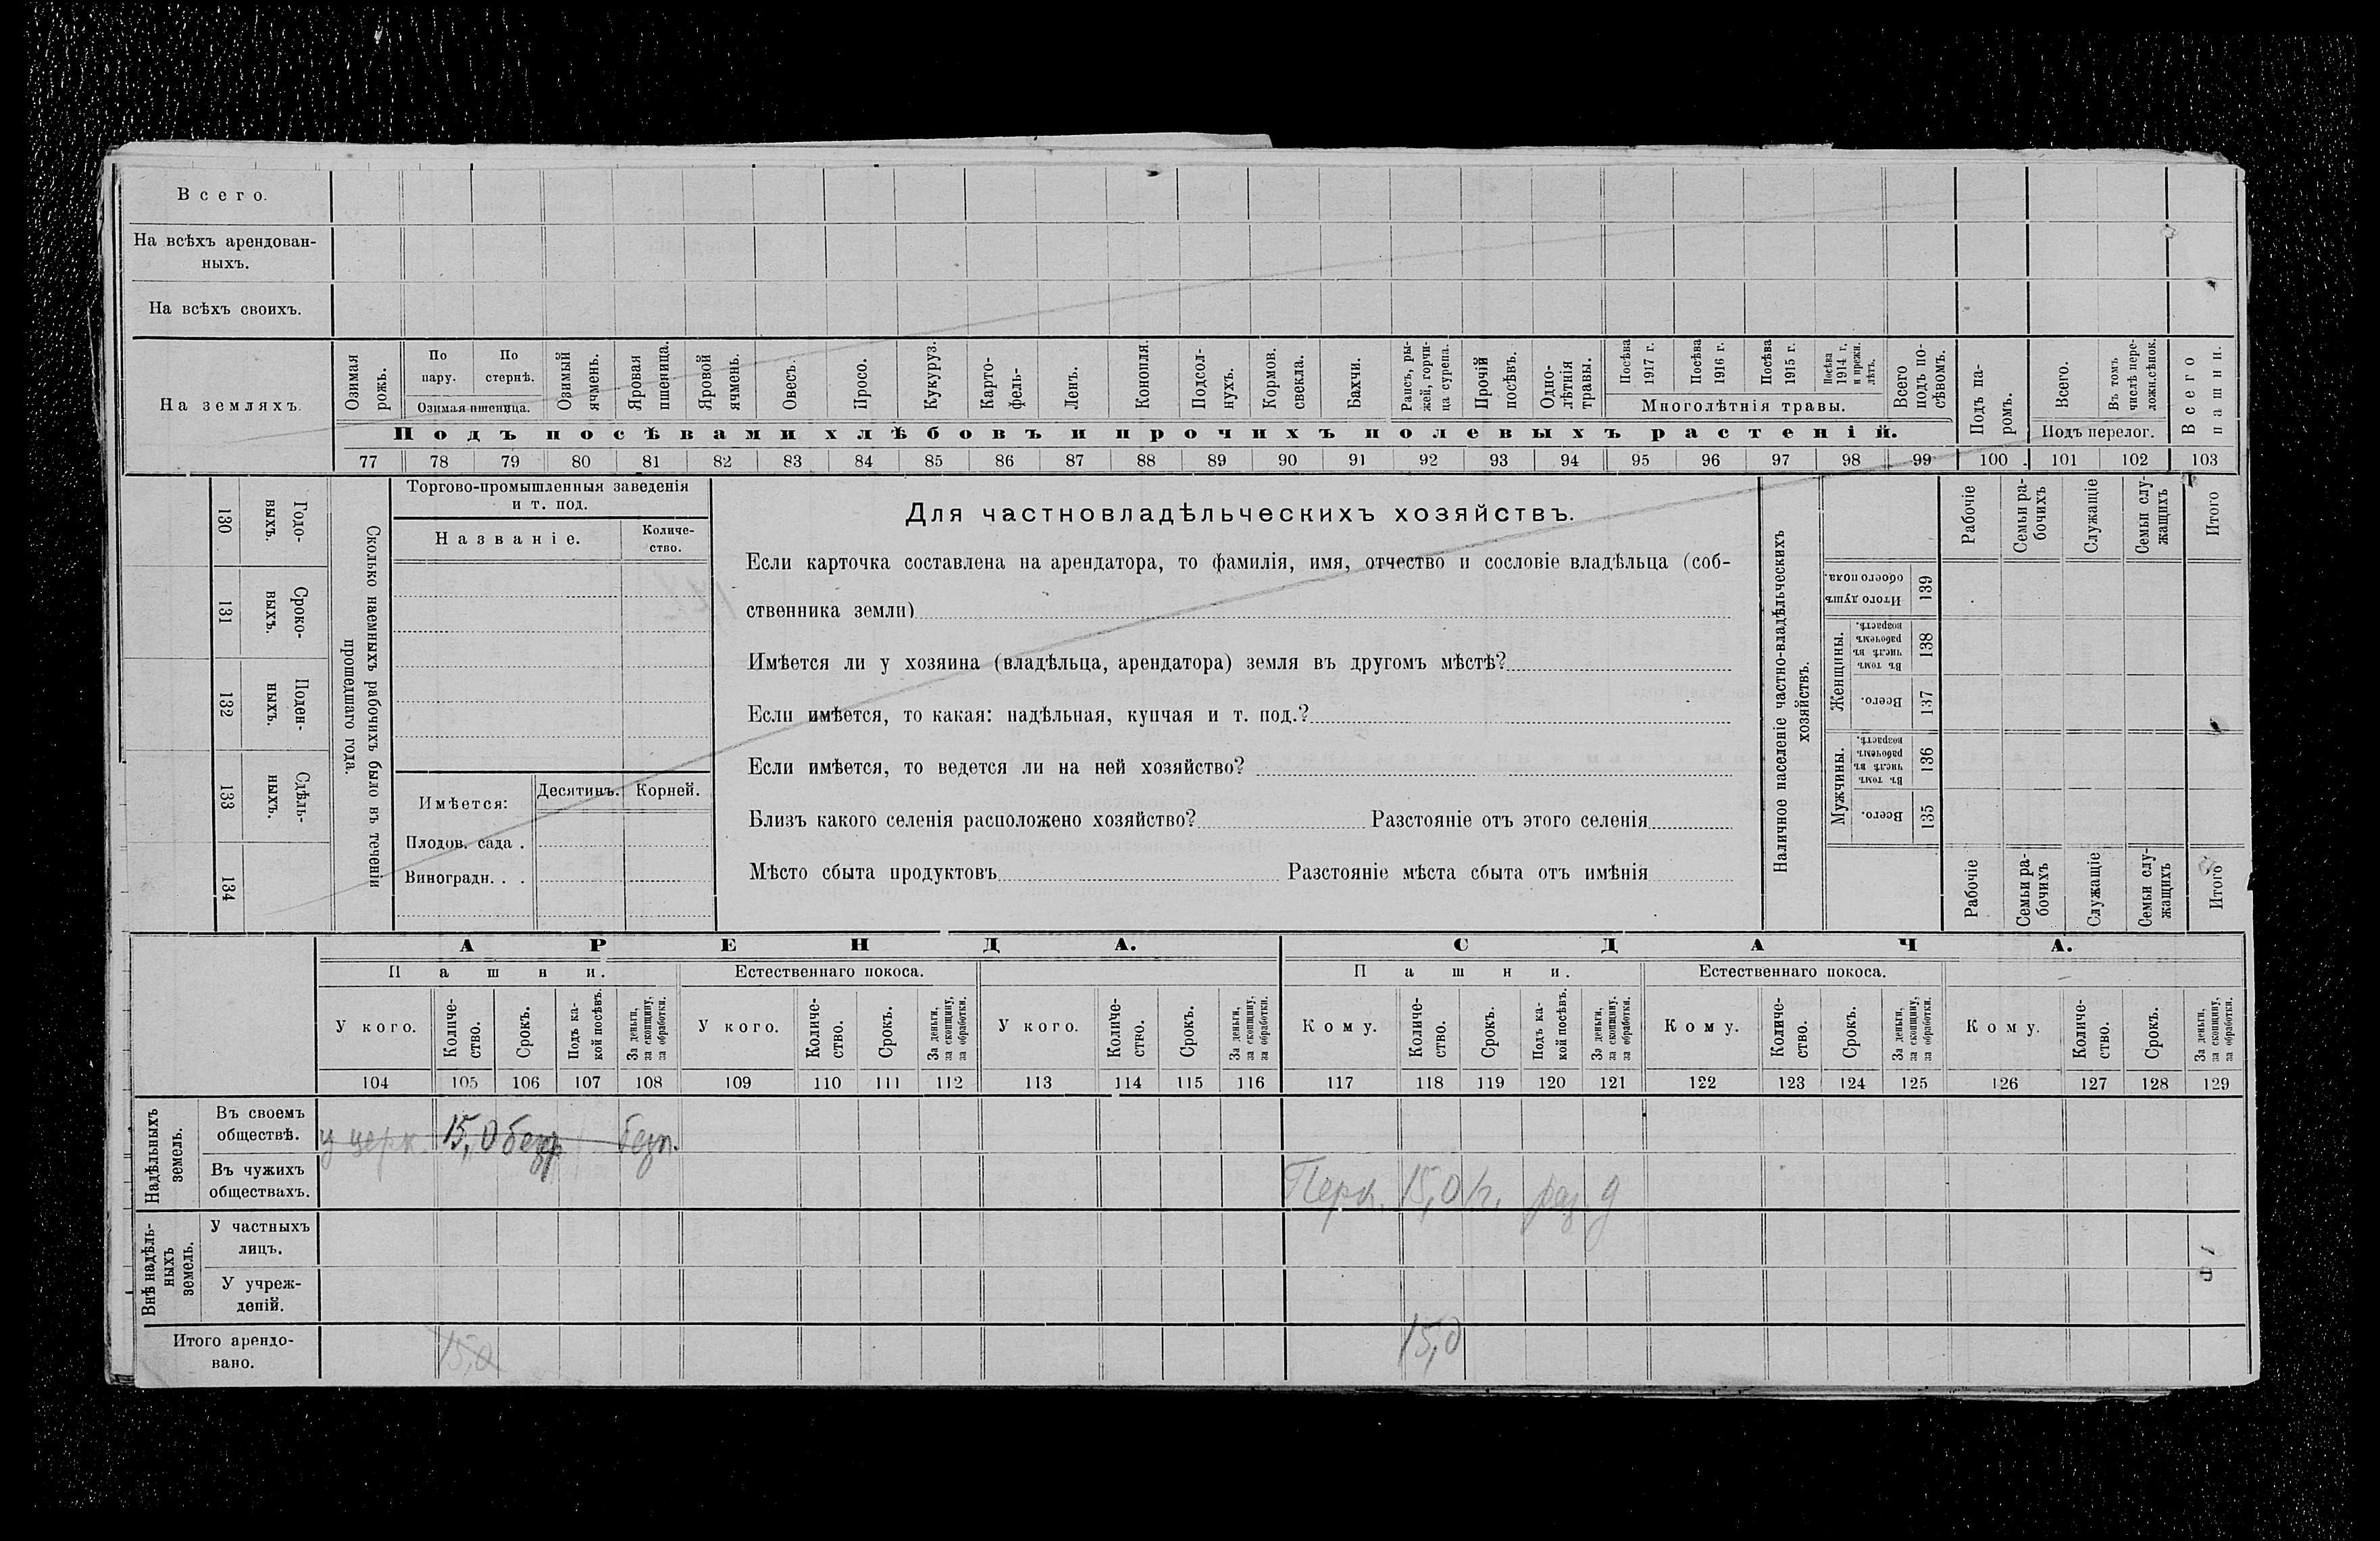 Всего.
На всѣхъ арендован-
ныхъ.
На всѣхъ своихъ.
На земляхъ.
Озимая рожь.
По пару.
По стернѣ.
Озимая пшеница.
Озимый ячмень.
Яровая пшеница.
Яровой ячмень.
Овесъ.
Просо.
Кукуруз.
Карто-
фель.
Ленъ.
Конопля.
Подсол-
нухъ.
Кормов. свекла.
Бахчи.
Рапсъ, ры-
жей, горчи-
ца сурепа.
Прочій посѣвъ.
Одно-
лѣтнія травы.
Посѣва 1917 г.
Посѣва 1916 г.
Посѣва 1915 г.
Посѣва 1914 г. и прежн. лѣтъ.
Многолѣтнія травы.
Всего подъ по-
сѣвомъ.
Подъ па-
ромъ.
Всего.
Въ томъ числѣ пере-
ложн.сѣнок.
Подъ перелог.
Всего пашни.
Подъ посѣвами хлѣбовъ и прочихъ полевыхъ растеній.
77 78 79 80 81 82 83 84 85 86 87 88 89 90 91 92 93 94 95 96 97 98 99 100 101 102 103
130 Годо-
выхъ.
131 Сроко-
выхъ.
132 Поден-
ныхъ.
133 Сдѣль-
ныхъ.
134
Сколько наемныхъ рабочихъ было въ теченіи
прошедшаго года.
Торгово-промышленныя заведенія
и т. под.
Названіе.
Количе-
ство.
Имѣется:
Десятинъ.
Корней.
Плодов. сада .
Виноградн. . .
Для частновладѣльческихъ хозяйствъ.
Если карточка составлена на арендатора, то фамилія, имя, отчество и сословіе владѣльца (соб-
ственника земли)
Имѣется ли у хозяина (владѣльца, арендатора) земля въ другомъ мѣстѣ?
Если имѣется, то какая: надѣльная, купчая и т. под.?
Если имѣется, то ведется ли на ней хозяйство?
Близъ какого селенія расположено хозяйство? Разстояніе отъ этого селенія
Мѣсто сбыта продуктовъ Разстояніе мѣста сбыта отъ имѣнія
Наличное населеніе частно-владѣльческихъ
хозяйствъ.
Рабочіе
Семьи ра-
бочихъ
Служащіе
Семьи слу-
жащихъ
Итого
Итого душъ обоего пола. 139
Женщины.
Въ томъ числѣ въ рабочемъ возрастѣ. 138
Всего. 137
Мужчины.
Въ томъ числѣ въ рабочемъ возрастѣ. 136
Всего. 135
Рабочіе
Семьи ра-
бочихъ
Служащіе
Семьи слу-
жащихъ
Итого
АРЕНДА.
СДАЧА.
Пашни.
Естественнаго покоса.
Пашни.
Естественнаго покоса.
У кого.
Количе-
ство.
Срокъ.
Подъ ка-
кой посѣвъ.
За деньги, за скопщину, за обработки.
У кого.
Количе-
ство.
Срокъ.
За деньги, за скопщину, за обработки.
У кого.
Количе-
ство.
Срокъ.
За деньги, за скопщину, за обработки.
Кому.
Количе-
ство.
Срокъ.
Подъ ка-
кой посѣвъ.
За деньги, за скопщину, за обработки.
Кому.
Количе-
ство.
Срокъ.
За деньги, за скопщину, за обработки.
Кому.
Количе-
ство.
Срокъ.
За деньги, за скопщину, за обработки.
104 105 106 107 108 109 110 111 112 113 114 115 116 117 118 119 120 121 122 123 124 125 126 127 128 129
Надѣльныхъ
земель.
Въ своемъ
обществѣ.
у церк. 15,0 безр безп.
Въ чужихъ
обществахъ.
15,0 1 г. раз. д
Внѣ надѣль-
ныхъ
земель.
У частныхъ
лицъ.
У учреж-
деній.
Итого арендо-
вано.
15,0
15,0